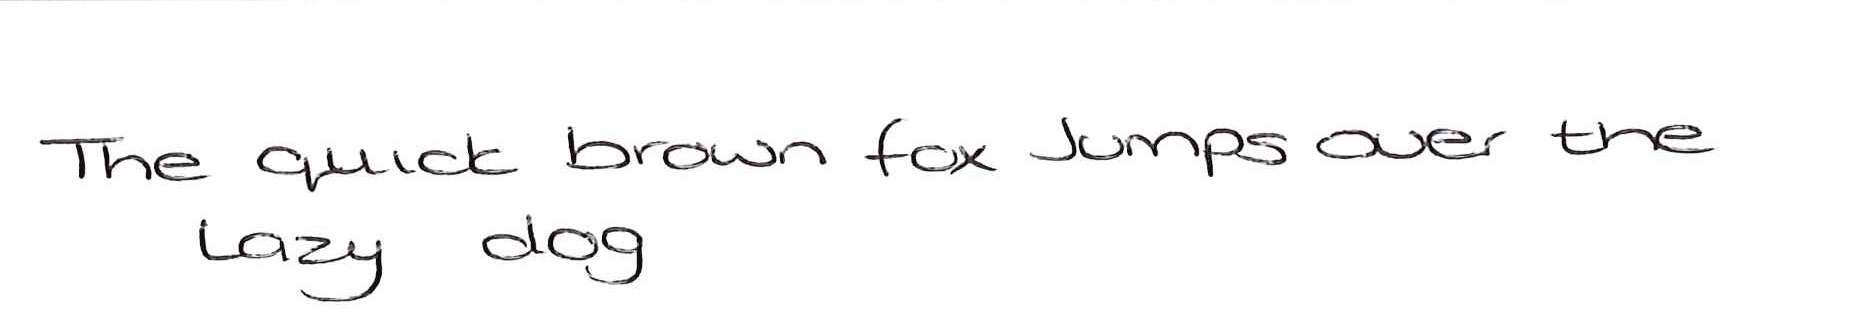 The quick brown fox Jumps over the
Lazy dog